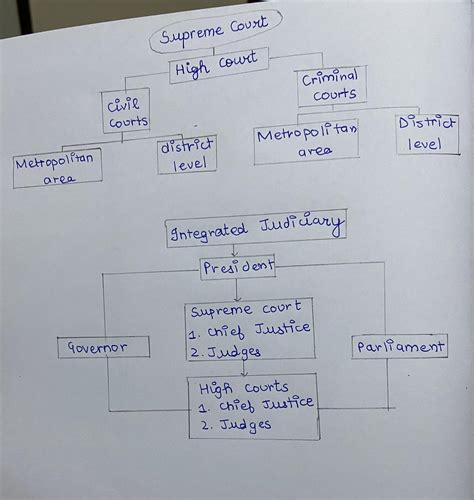 Supreme Court
High Court
Civil
Courts
Criminal
courts
Metropolitan
area
district
level
Metropolitan
area
District
level
Integrated Judiciary
President
Supreme court
1. Chief Justice
2. Judges
Governor
Parliament
High Courts
1. Chief Justice
2. Judges